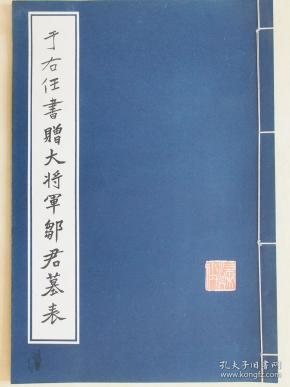 于右任書贈大将軍鄒君墓表
孔夫子旧书网
www.kongfz.com